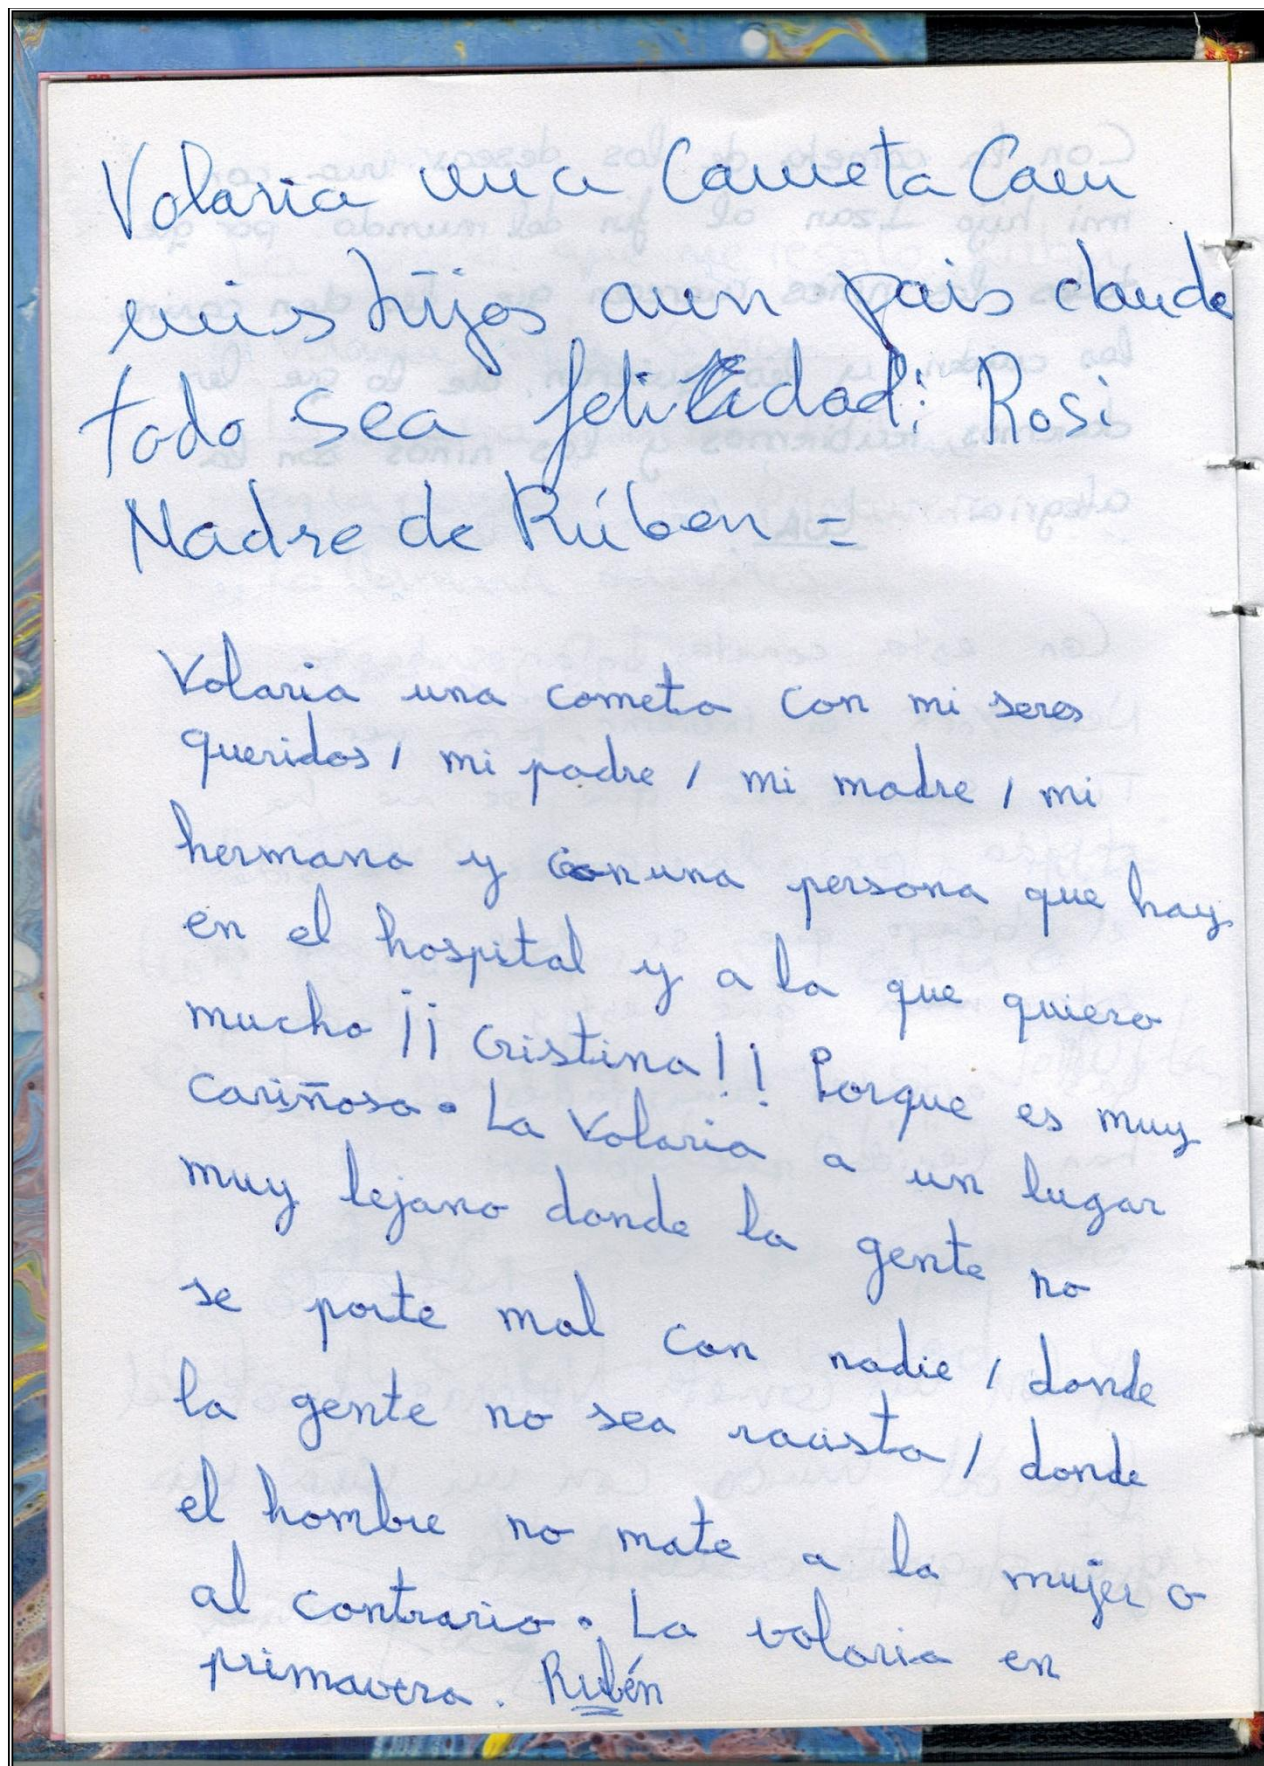 Volaria una Cometa Con
mis hijos aun pais donde
todo sea felicidad: Rosi
Madre de Rúben =
Volaria una cometa con mi seres
queridos, mi padre, mi madre, mi
hermana y con una persona que hay
en el hospital y a la que quiero
mucho ¡¡ Cristina!! Porque es muy
cariñosa. La volaria a un lugar
muy lejano donde la gente no
se porte mal con nadie, donde
la gente no sea racista, donde
el hombre no mate a la mujer o
al contrario. La volaria en
primavera. Rubén